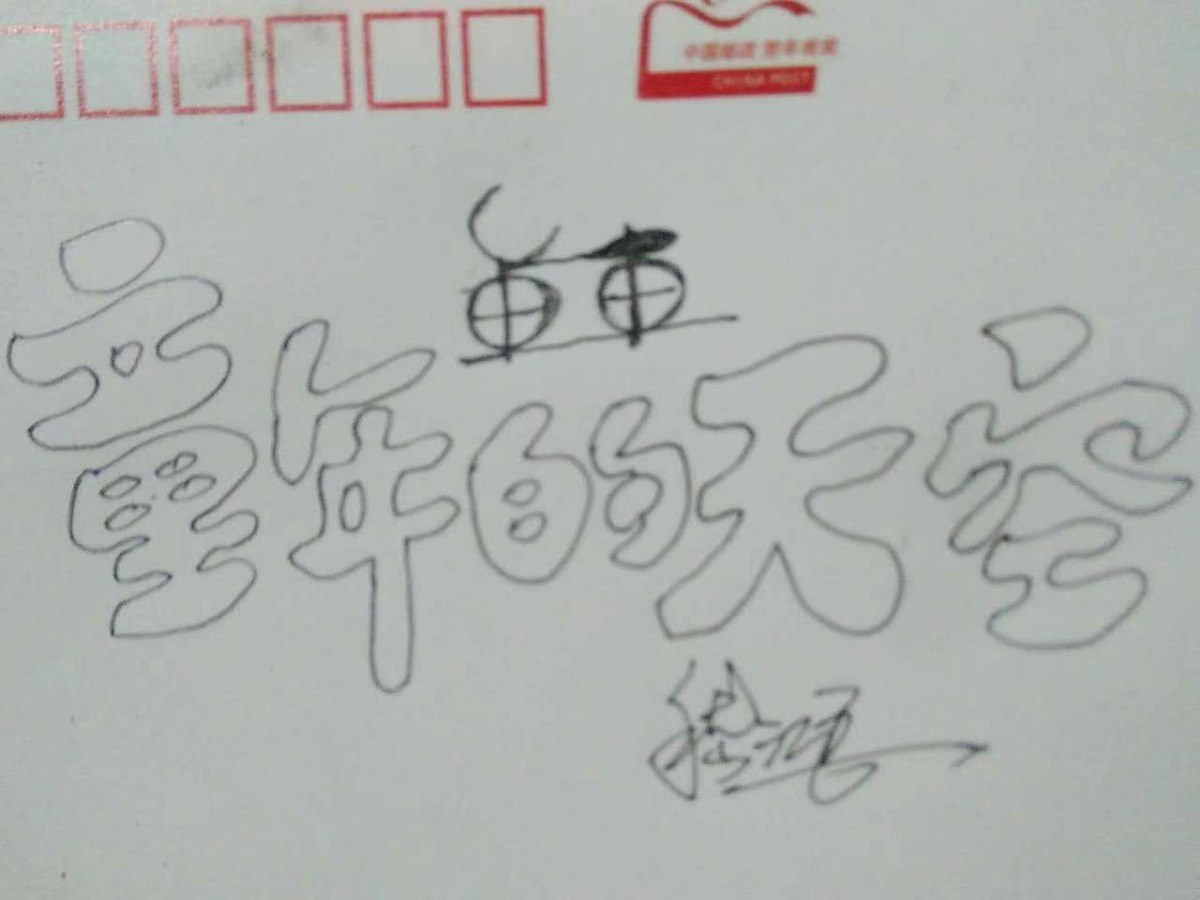 中国邮政 贺年有奖
CHINA POST
童年的天空